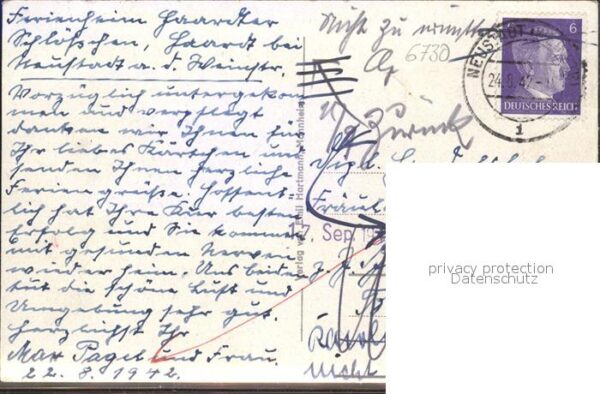 Ferienheim Haardter
Schlößchen, Haardt bei
Neustadt a. d. Weinstr.
Vorzüglich untergekom
men und verpflegt
danken wir Ihnen für
Ihr liebes Kärtchen und
senden Ihnen herzliche
Feriengrüße. Hoffent
lich hat Ihre Kur besten
Erfolg und Sie kommen
mit gesunden Nerven
wieder heim. Uns beiden
tut die schöne Luft und
Umgebung sehr gut.
Herzlichst Ihr
Max Pagel und Frau.
22. 8. 1942.
Verlag von Emil Hartmann, Mannheim
Nicht zu ermitteln
6730
Zurück
Fräul
17. Sep. 19
nicht
NEUSTADT
24.8.42
1
6
DEUTSCHES REICH
privacy protection
Datenschutz